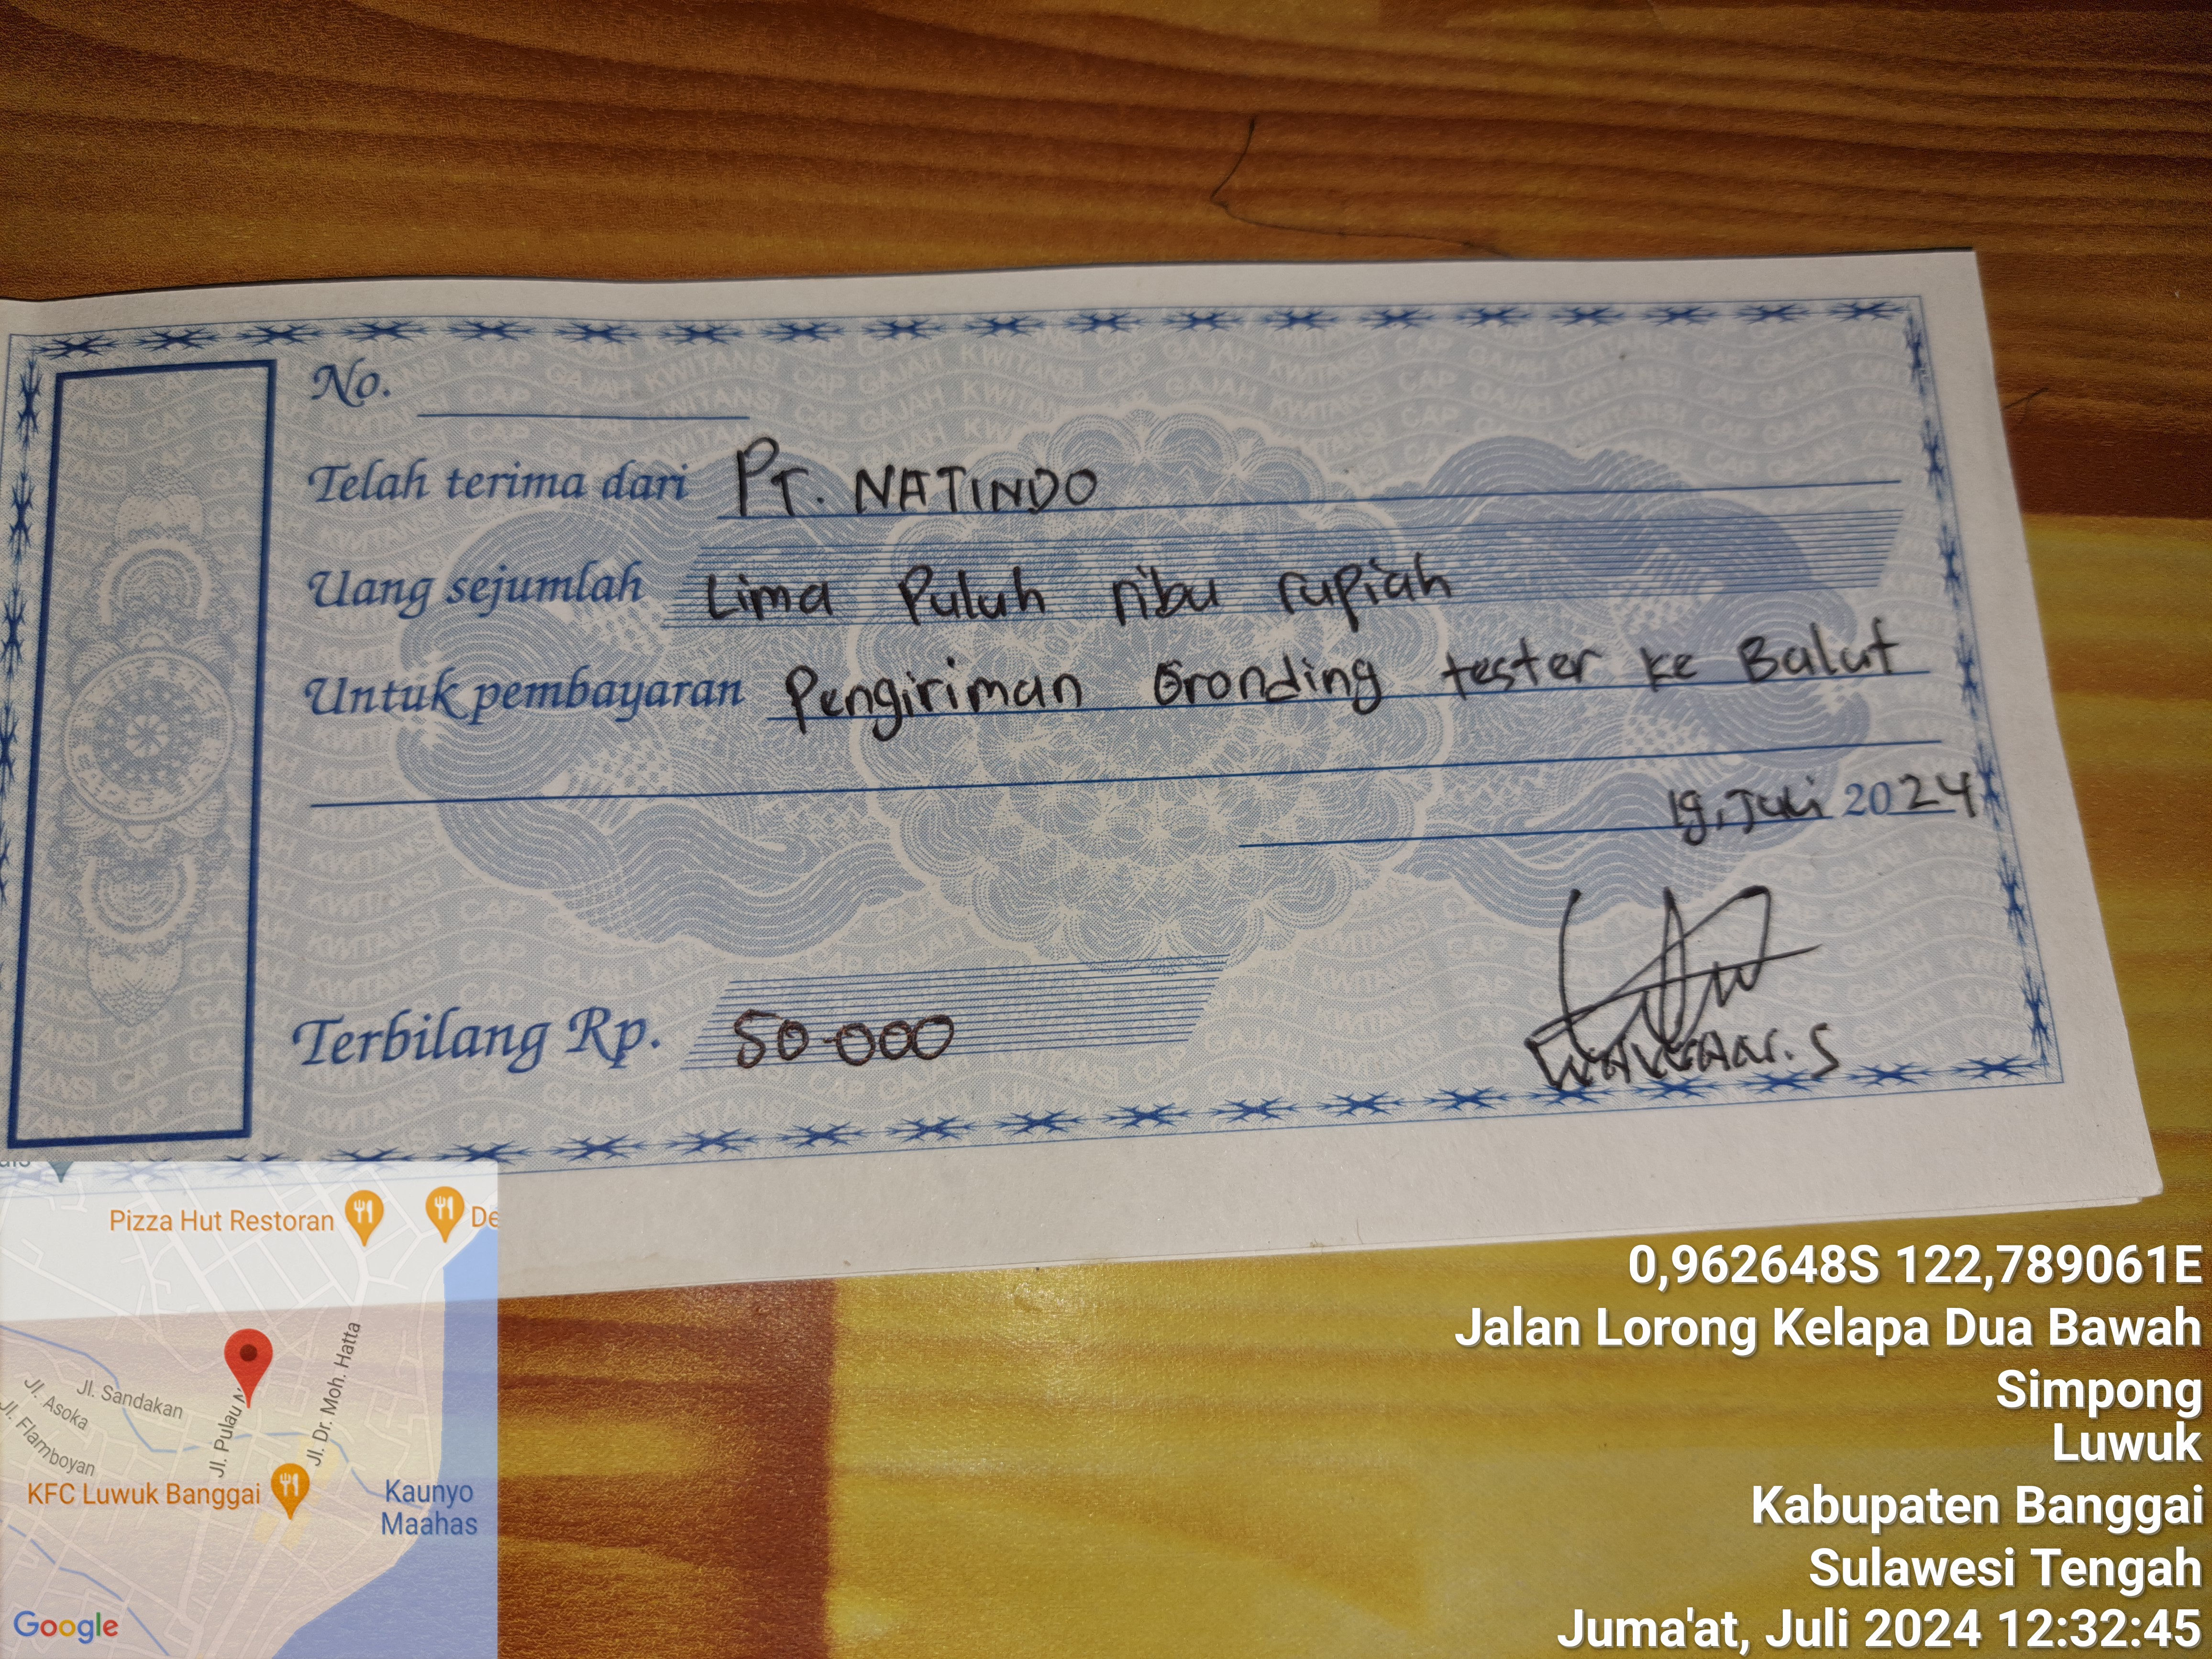 No.
Telah terima dari PT. NATINDO
Uang sejumlah Lima Puluh ribu rupiah
Untuk pembayaran Pengiriman Gronding tester ke Balut
19, Juli 2024
Terbilang Rp. 50.000
Pizza Hut Restoran
De
Jl. Sandakan
Jl. Asoka
Jl. Flamboyan
Jl. Pulau
Jl. Dr. Moh. Hatta
KFC Luwuk Banggai
Kaunyo
Maahas
Google
0,962648S 122,789061E
Jalan Lorong Kelapa Dua Bawah
Simpong
Luwuk
Kabupaten Banggai
Sulawesi Tengah
Juma'at, Juli 2024 12:32:45